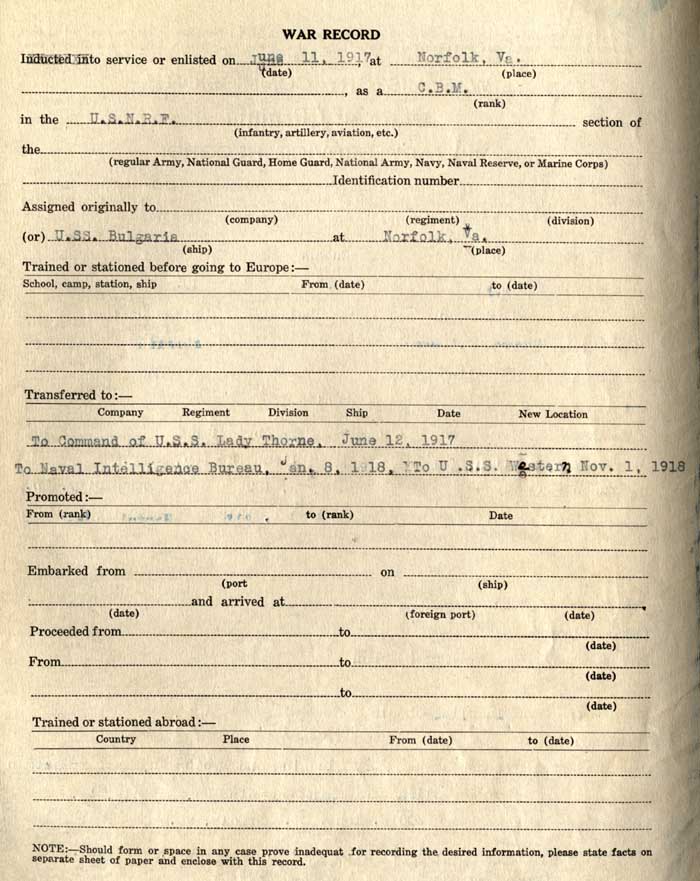 WAR RECORD
Inducted into service or enlisted on June 11, 1917, at Norfolk, Va.
(date) (place)
, as a C.B.M.
(rank)
in the U.S.N.R.F. section of
(infantry, artillery, aviation, etc.)
the
(regular Army, National Guard, Home Guard, National Army, Navy, Naval Reserve, or Marine Corps)
Identification number
Assigned originally to
(company) (regiment) (division)
(or) U.SS. Bulgaria at Norfolk, Va.
(ship) (place)
Trained or stationed before going to Europe:—
School, camp, station, ship From (date) to (date)
Transferred to:—
Company Regiment Division Ship Date New Location
To Command of U.S.S. Lady Thorne, June 12, 1917
To Naval Intelligence Bureau, Jan. 8, 1918, To U.S.S. Western Nov. 1, 1918
Promoted:—
From (rank) to (rank) Date
Embarked from on
(port (ship)
and arrived at
(date) (foreign port) (date)
Proceeded from to
(date)
From to
(date)
to
(date)
Trained or stationed abroad:—
Country Place From (date) to (date)
NOTE:—Should form or space in any case prove inadequat for recording the desired information, please state facts on
separate sheet of paper and enclose with this record.